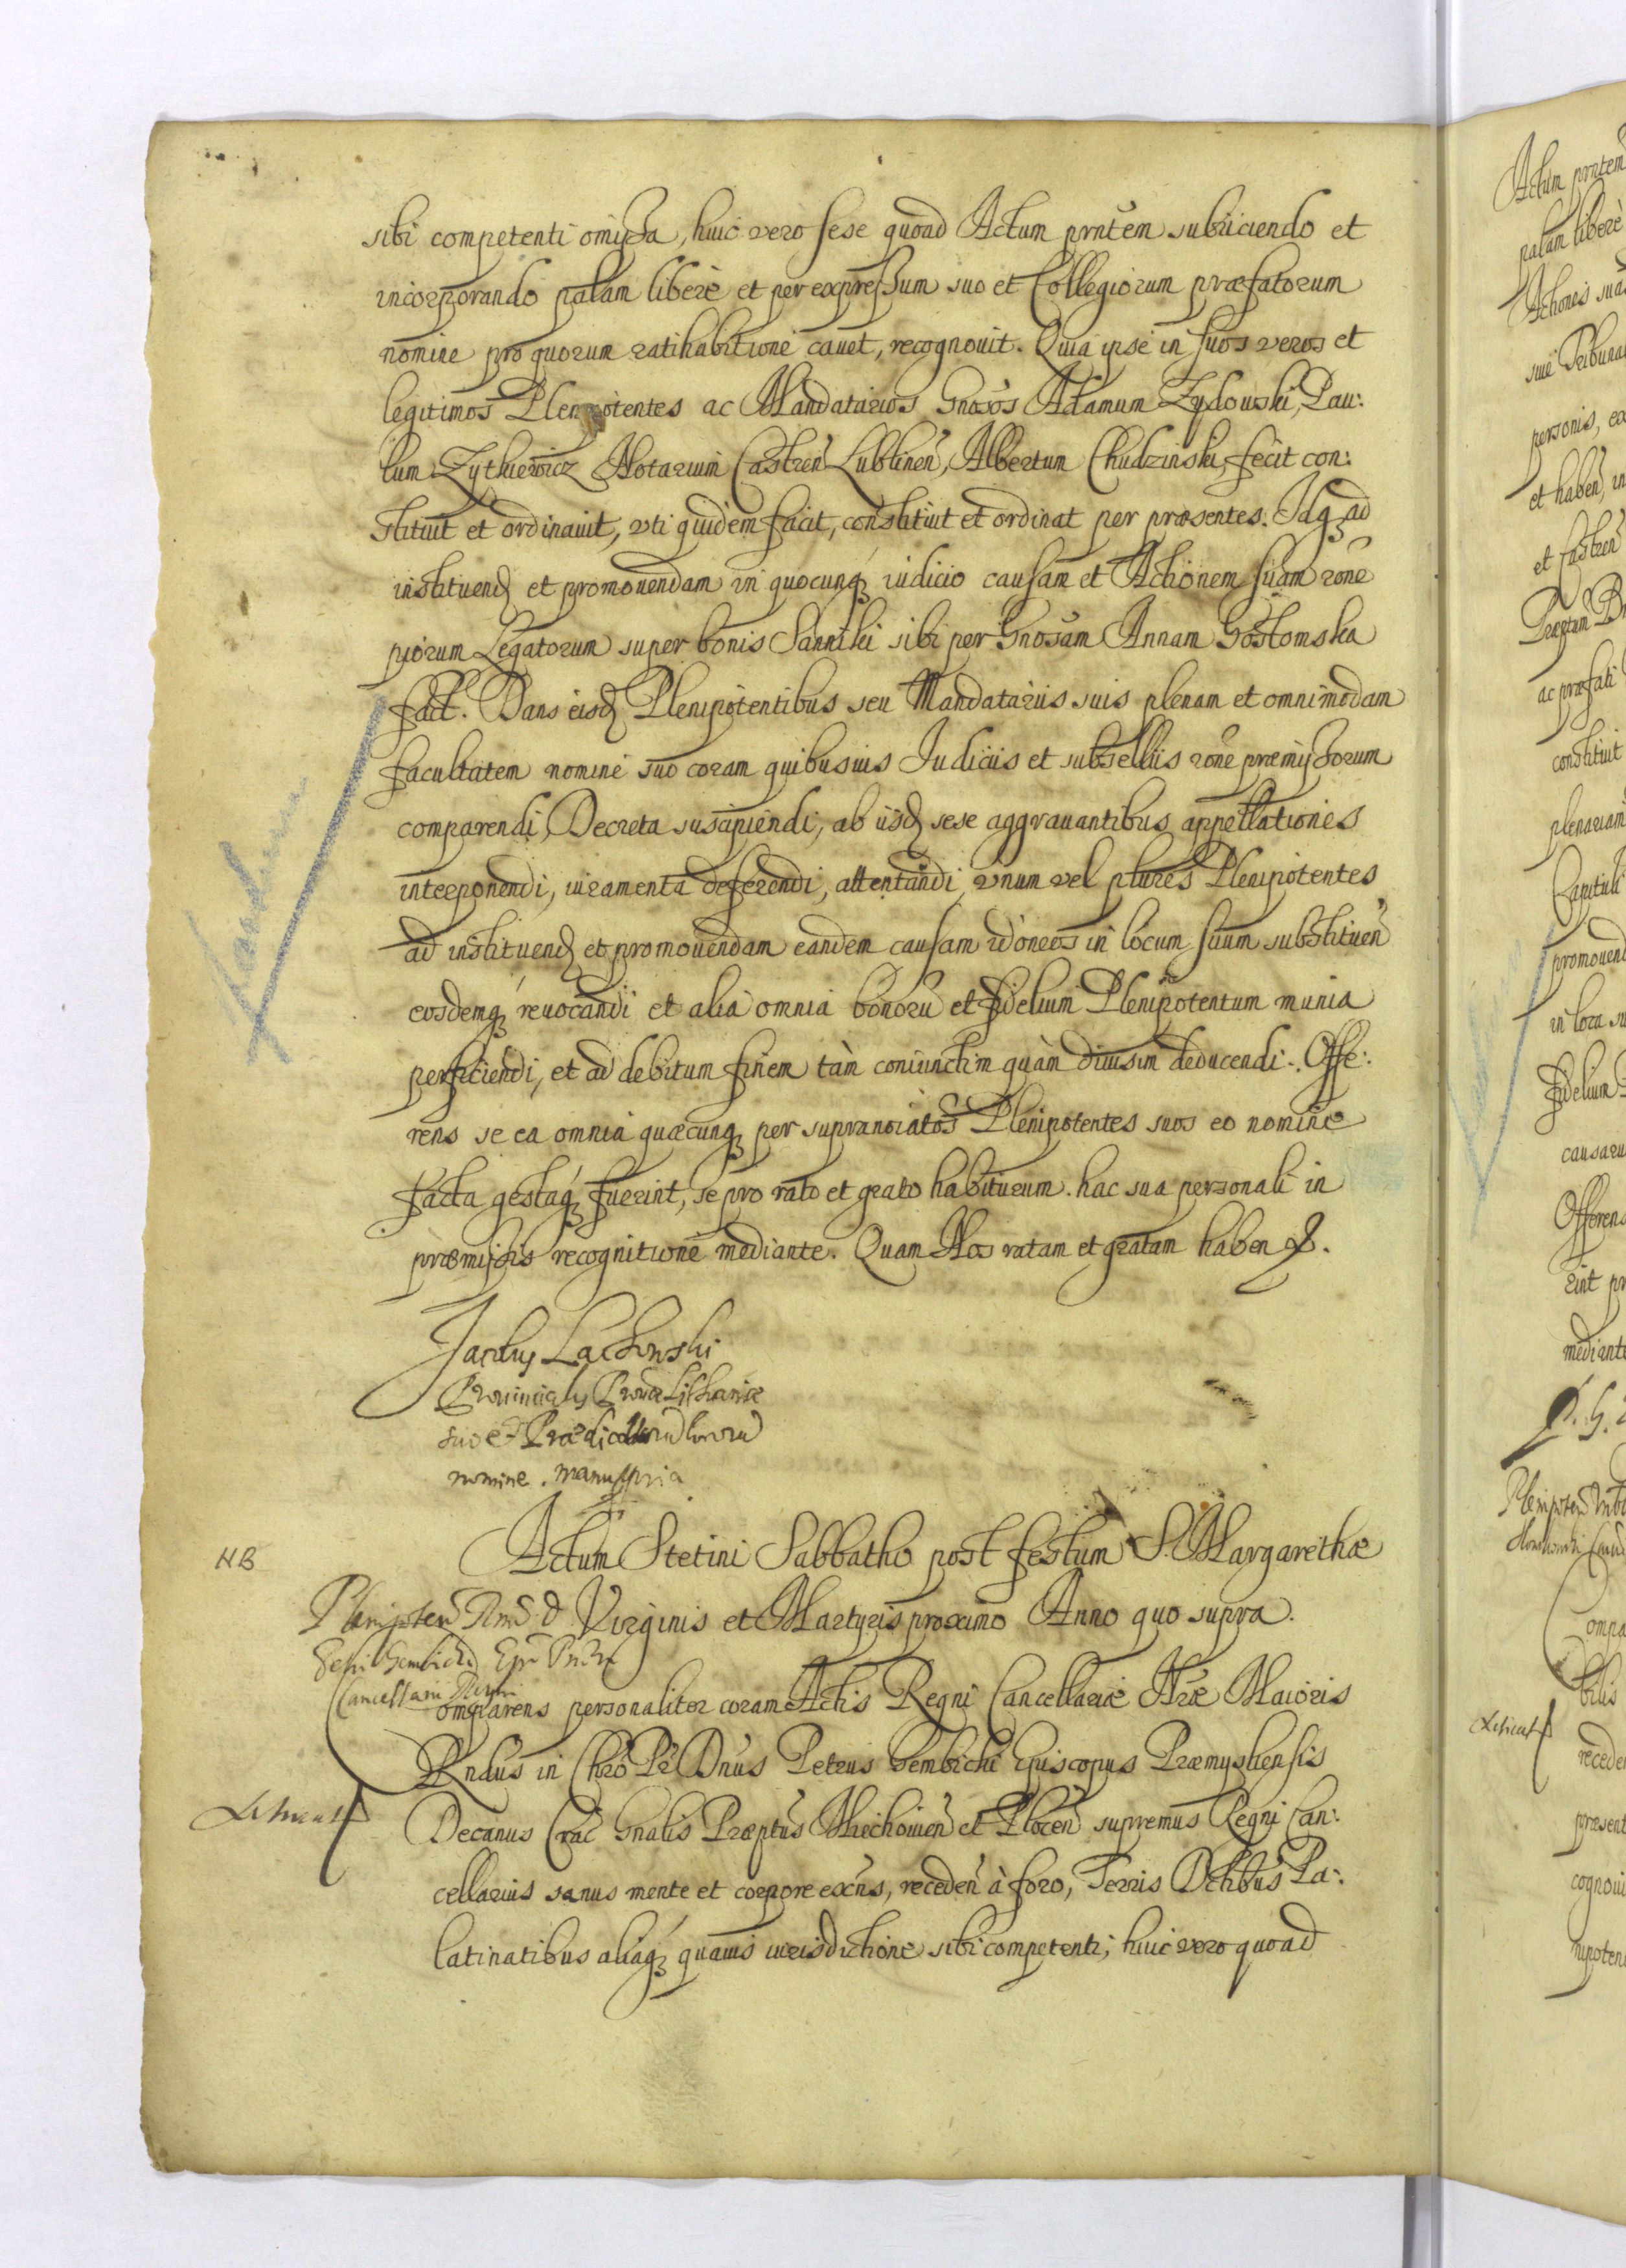 sibi competenti omissa, huic vero sese quoad Actum prntem subiiciendo et
incorporando palam liberè et per expressum suo et Collegiorum præfatorum
nomine pro quorum ratihabitione cauet, recognouit. Quia ipse in suos veros et
legitimos Plenipotentes ac Mandatarios Gnosos Adamum Zydowski, Pau:
lum Zytkiewicz Notarium Castren Lublinen, Albertum Chudzinski fecit con:
stituit et ordinauit, vti quidem facit, constituit et ordinat per præsentes. Idq3 ad
instituend et promouendam in quocunq3 iudicio causam et Actionem suam rone
piorum Legatorum super bonis Sanniki sibi per Gnosam Annam Gostomska
fact. Dans eisd Plenipotentibus seu Mandatariis suis plenam et omnimodam
facultatem nomine suo coram quibusuis Iudiciis et subselliis rone præmissorum
comparendi, Decreta suscipiendi, ab iisd sese aggrauantibus appellationes
interponendi, iuramenta deferendi, attentandi, vnum vel plures Plenipotentes
ad instituend et promouendam eandem causam idoneos in locum suum substituen
eosdemq3 reuocandi et alia omnia bonoru et fidelium Plenipotentum munia
perficiendi, et ad debitum finem tàm coniunctim quàm diuisim deducendi. Offe:
rens se ea omnia quæcunq3 per supranoiatos Plenipotentes suos eo nomine
facta gestaq3 fuerint, se pro rato et grato habiturum. hac sua personali in
præmissis recognitione mediante. Quam Nos ratam et gratam haben &.
Jacobus Lachowski
Prouincialis Prouæ Lithaniæ
suo et Prædictoru
nomine. manu ppria
NB
Actum Stetini Sabbatho post festum S. Margarethæ
Virginis et Martyris proximo Anno quo supra.
Plenipoten Rmd d
Petri Gembicki Epi Prem
Cancellarii Regni
Comparens personaliter coram Actis Regni Cancellariæ Nræ Maioris
Rndus in Chro Pr Dnus Petrus Gembicki Episcopus Præmysliensis
Decanus Crac Gnalis Præptus Miechouien et Plocen supremus Regni Can:
cellarius sanus mente et corpore exns, receden à foro, Terris Dctibus Pa:
latinatibus aliaq3 quauis iurisdictione sibi competenti; huic vero quoad